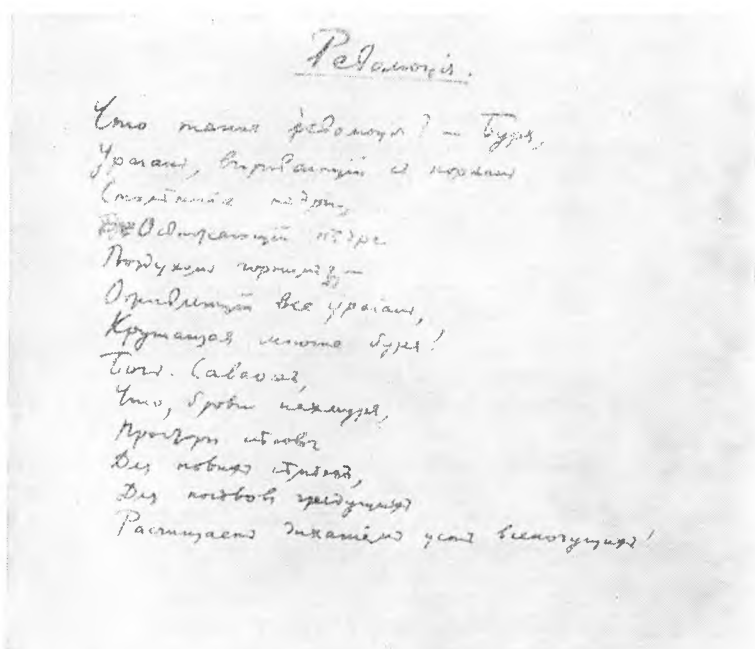 Революція.
Что такое революція? — Буря,
Ураганъ, вырывающій съ корнями
Столѣтніе кедры,
Освѣжающій нѣдра
Воздухомъ горнимъ —
все ураганъ,
Крушащая многое буря!
Богъ. Саваоѳъ,
Что, брови нахмуря,
Просторы
Для новыхъ
Для посѣвовъ грядущихъ
Расчищаетъ дыханіемъ устъ всемогущихъ!